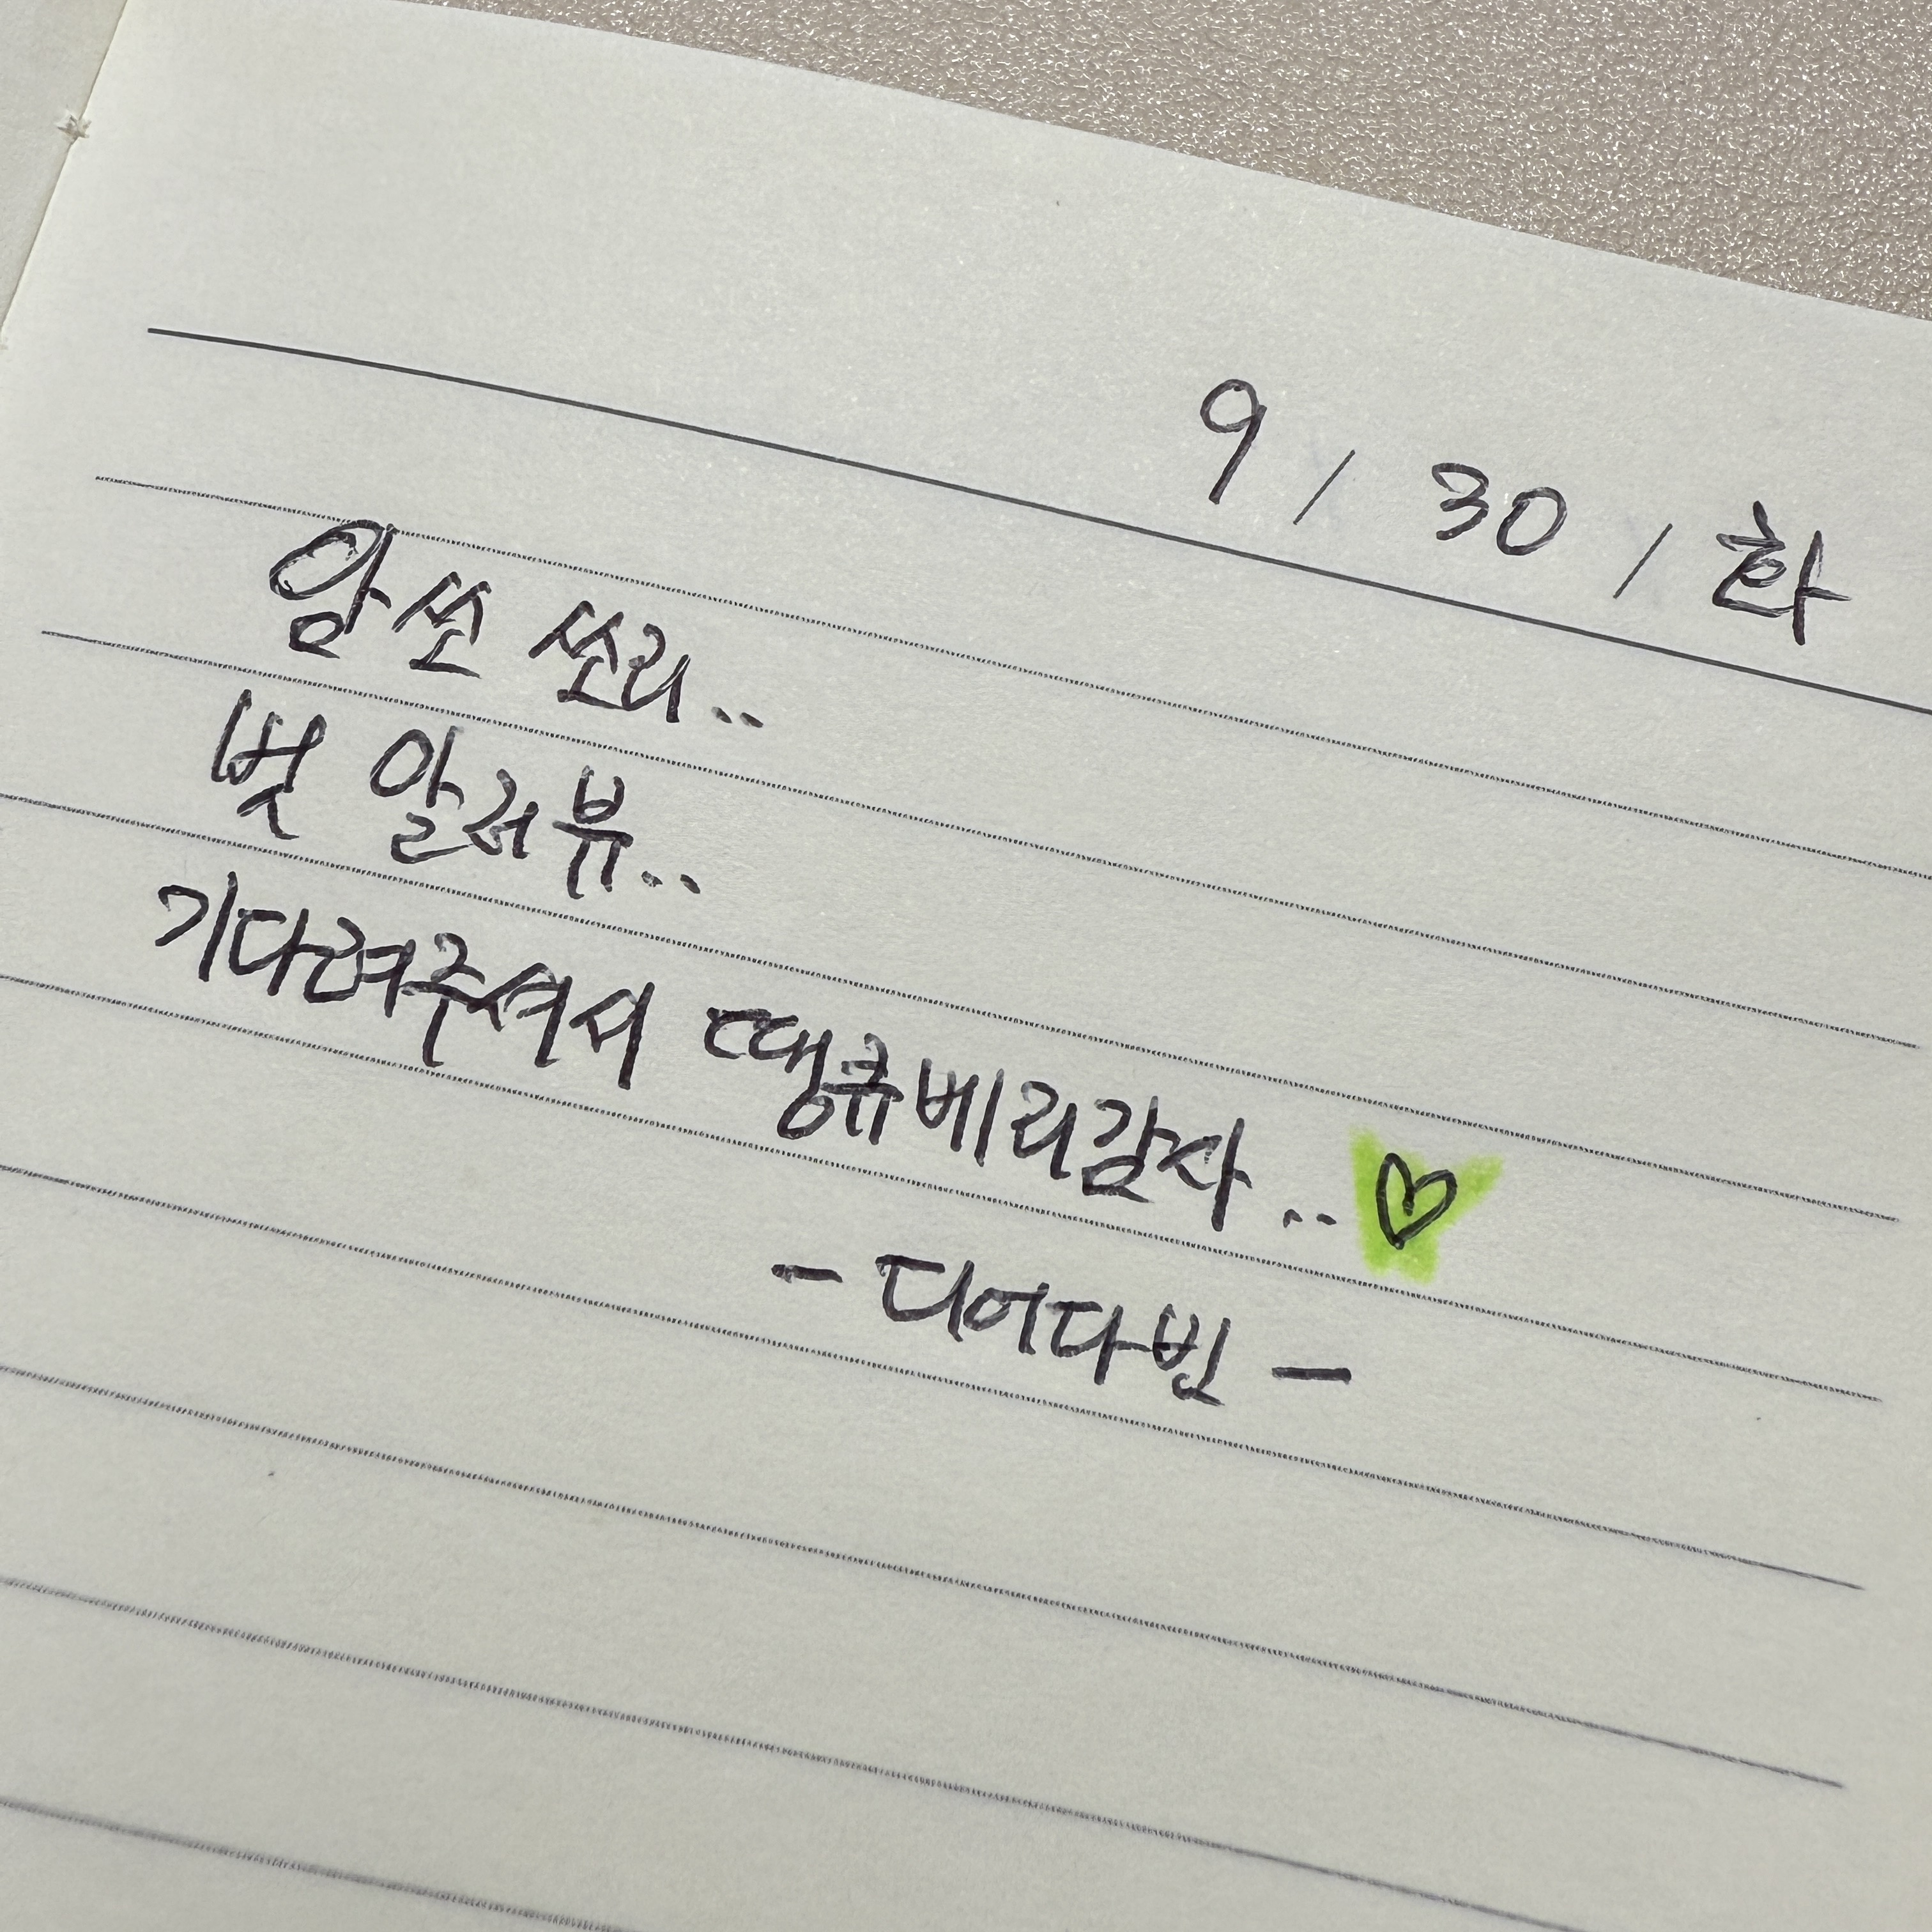 9 / 30 / 화
암쏘 쏘리..
벗 알러뷰..
기다려주셔서 땡큐베리감사..♡
- 디어다빈 -